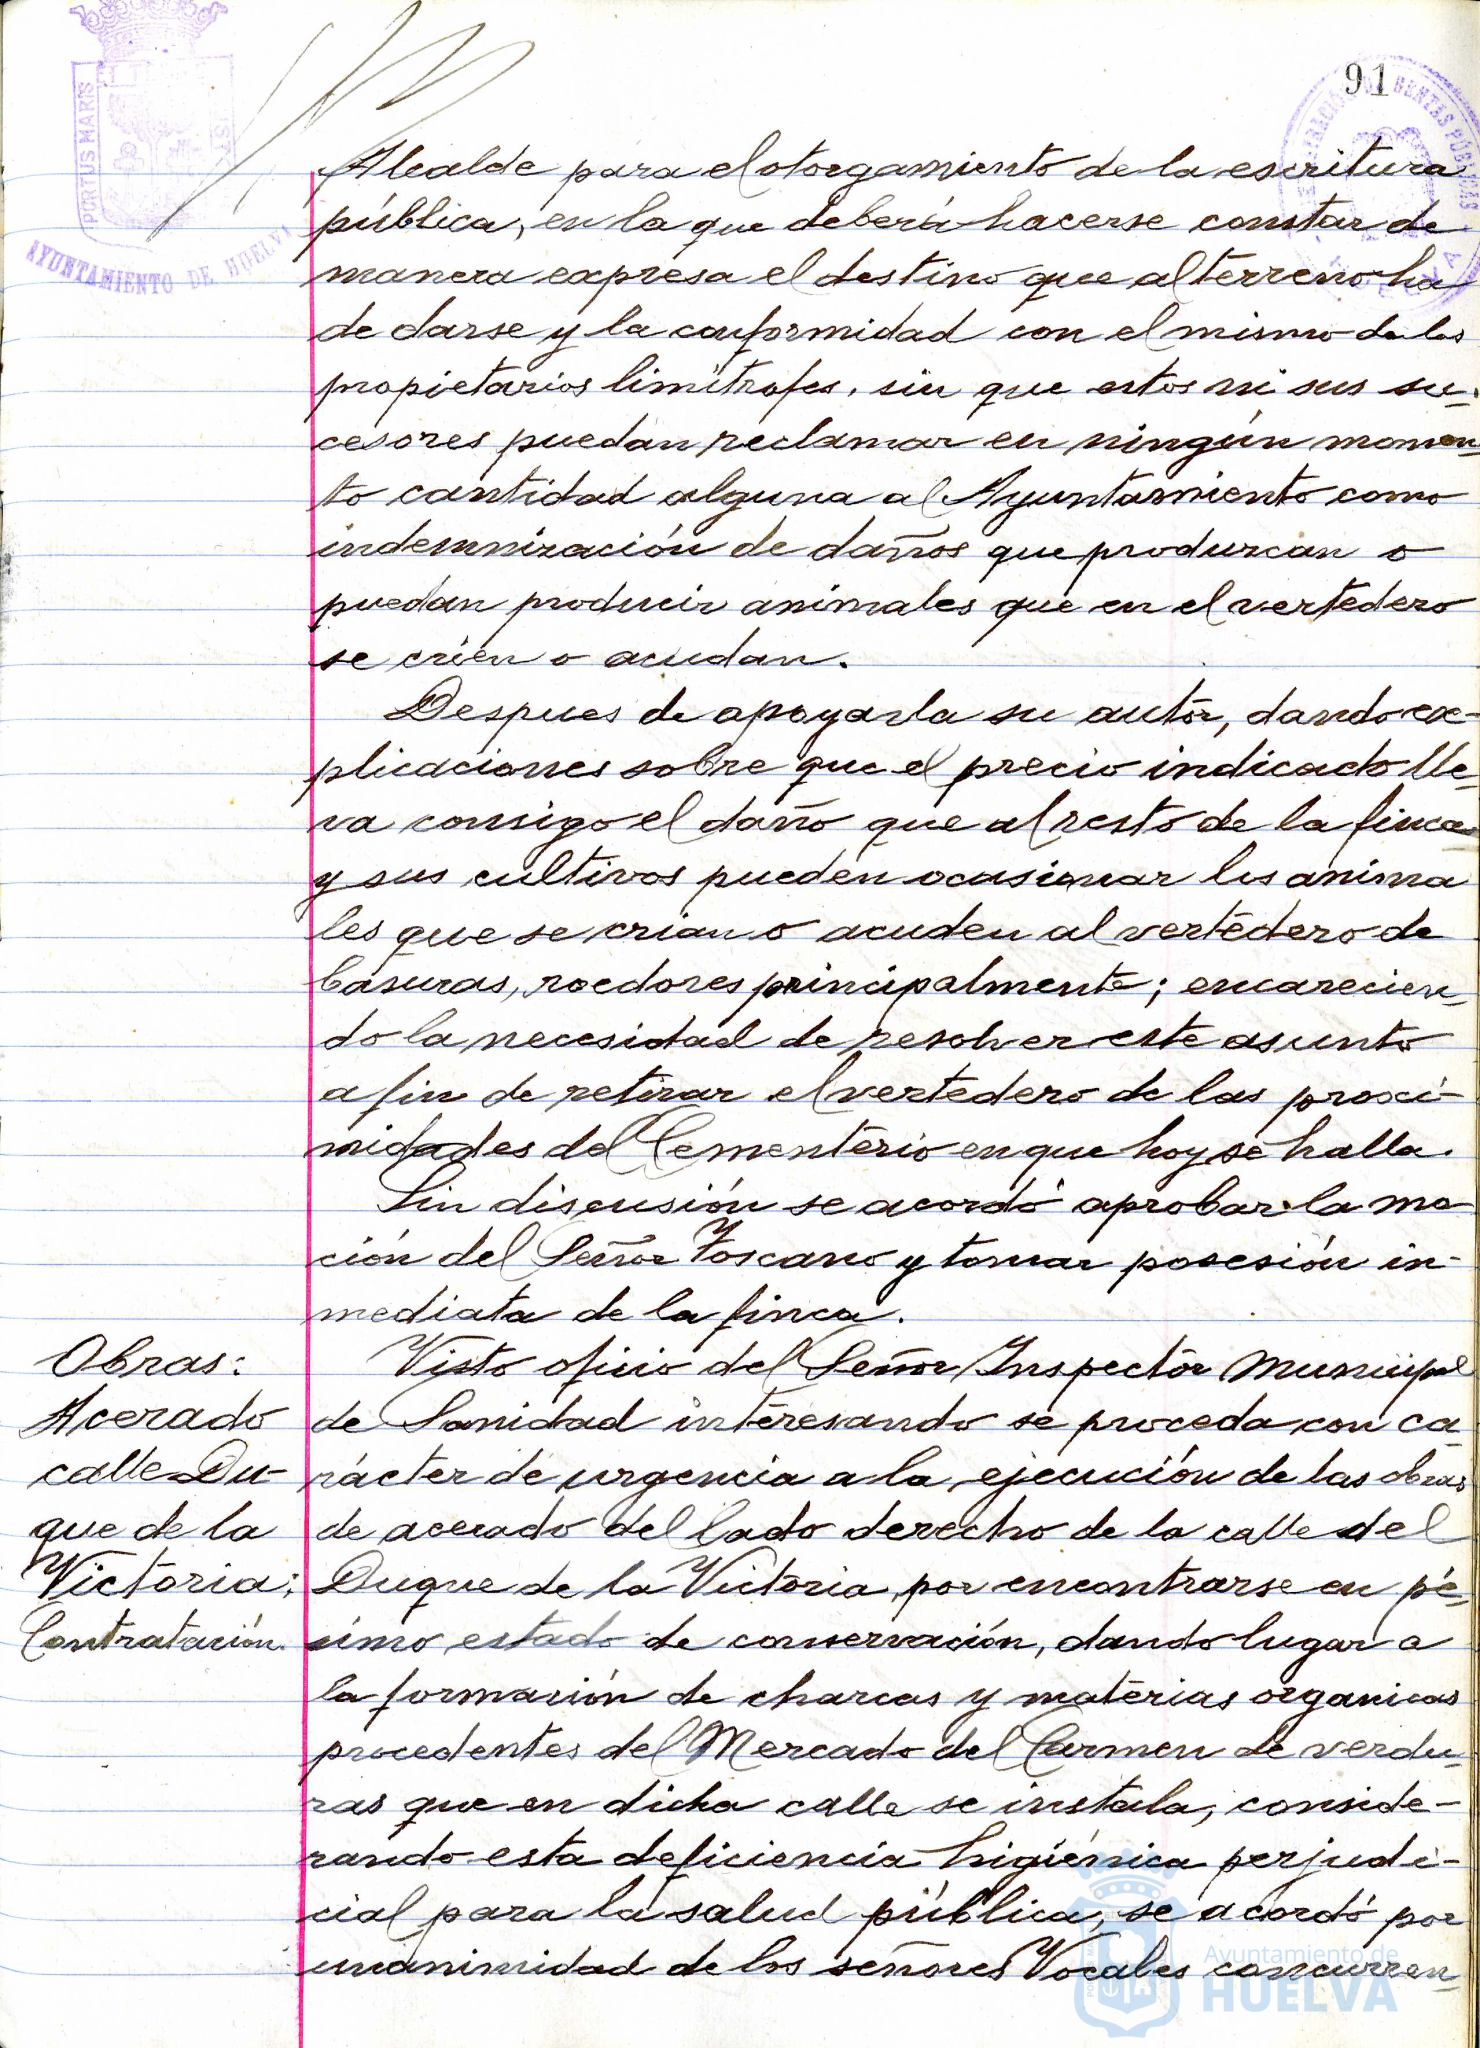 91
PORTUS MARIS ET TERRE
AYUNTAMIENTO DE HUELVA
Alcalde para el otorgamiento de la escritura
pública, en la que deberá hacerse constar de
manera expresa el destino que al terreno ha
de darse y la conformidad con el mismo de los
propietarios limítrofes, sin que estos ni sus su-
cesores puedan reclamar en ningún momen-
to cantidad alguna al Ayuntamiento como
indemnización de daños que produzcan o
puedan producir animales que en el vertedero
se crien o acudan.
Despues de apoyarla su autor, dando ex-
plicaciones sobre que el precio indicado lle-
va consigo el daño que al resto de la finca
y sus cultivos pueden ocasionar los anima
les que se crian o acuden al vertedero de
basuras, roedores principalmente; encarecien-
do la necesidad de resolver este asunto
a fin de retirar el vertedero de las proxi-
midades del Cementerio en que hoy se halla.
Sin discusión se acordó aprobar la mo-
ción del Señor Toscano y tomar posesión in-
mediata de la finca.
Obras:
Acerado
calle Du-
que de la
Victoria;
Contratación.
Visto oficio del Señor Inspector Municipal
de Sanidad interesando se proceda con ca-
rácter de urgencia a la ejecución de las obras
de acerado del lado derecho de la calle del
Duque de la Victoria, por encontrarse en pé-
simo estado de conservación, dando lugar a
la formación de charcas y materias organicas
procedentes del Mercado del Carmen de verdu-
ras que en dicha calle se instala, conside-
rando esta deficiencia higiénica perjudi-
cial para la salud pública, se acordó por
unanimidad de los señores Vocales concurren-
Ayuntamiento de
HUELVA